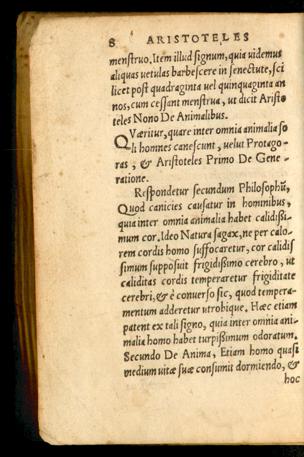 8 ARISTOTELES
menstruo. Item illud signum, quia videmus
aliquas uetulas barbescere in senectute, sci
licet post quadraginta uel quinquaginta an
nos, cum cessant menstrua, ut dicit Aristo
teles Nono De Animalibus.
QVæritur, quare inter omnia animalia so
li homnes canescunt, uelut Protago-
ras, & Aristoteles Primo De Gene-
ratione.
Respondetur secundum Philosophũ,
Quod canicies causatur in hominibus,
quia inter omnia animalia habet calidißi-
mum cor. Ideo Natura sagax, ne per calo-
rem cordis homo suffocaretur, cor calidiſ
simum supposuit frigidißimo cerebro, ut
caliditas cordis temperaretur frigiditate
cerebri, & è conuerso sic, quod tempera-
mentum adderetur utrobique. Hæc etiam
patent ex tali signo, quia inter omnia ani-
malia homo habet turpißimum odoratum.
Secundo De Anima, Etiam homo quasi
medium uitæ suæ consumit dormiendo, &
hoc